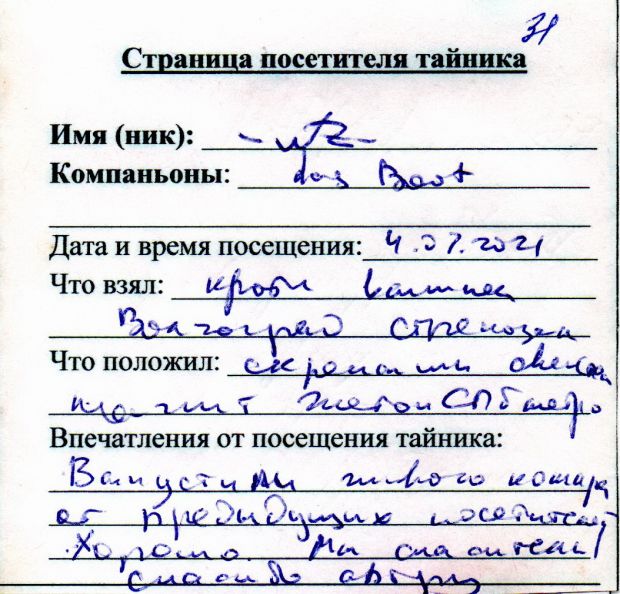 31
Страница посетителя тайника
Имя (ник): -utz-
Компаньоны: das Boot
Дата и время посещения: 4.07.2021
Что взял: кроты
Волгоград
Что положил:
магнит жетон СПб метро
Впечатления от посещения тайника:
Выпустили живого комара
от предыдущих посетителей
Хорошо. Мы спасители!
спасибо автору